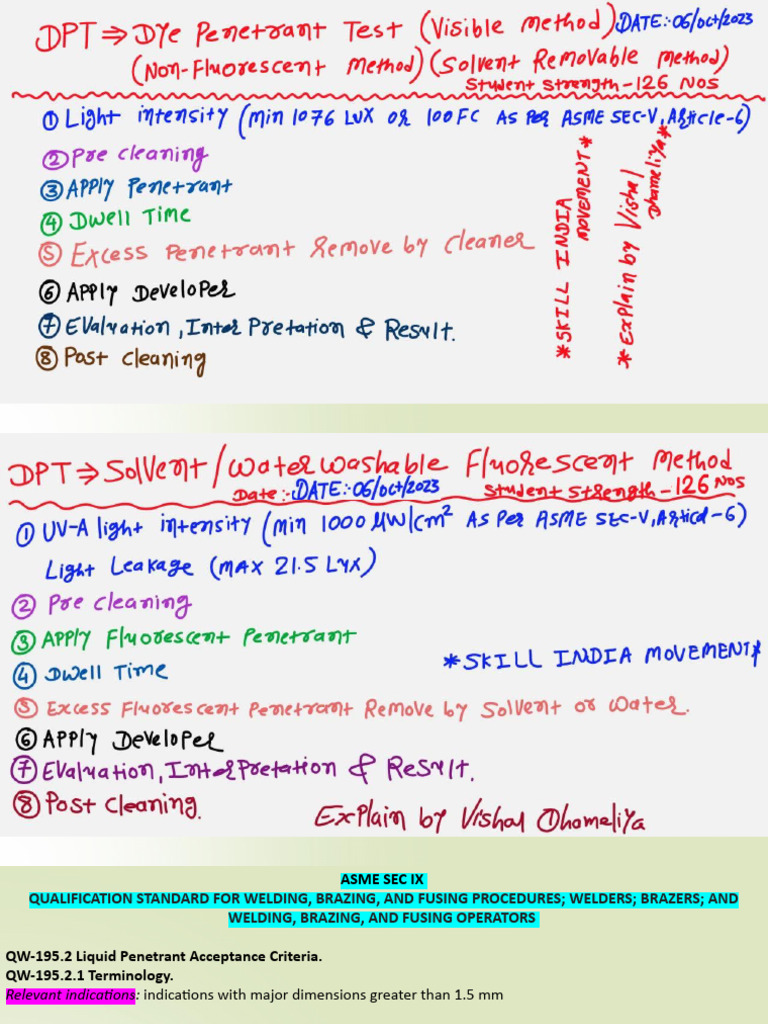 DPT ⇒ Dye Penetrant Test (Visible Method) DATE:-06/Oct/2023
(Non-Fluorescent Method) (Solvent Removable Method)
Student Strength-126 Nos
① Light intensity (Min 1076 Lux or 100 FC As Per ASME SEC-V, Article-6)
② Pre Cleaning
③ APPly Penetrant
④ Dwell Time
⑤ Excess Penetrant Remove by Cleaner
⑥ APPly Developer
⑦ Evaluation, Interpretation & Result.
⑧ Post Cleaning
*SKILL INDIA
MOVEMENT*
*Explain by Vishal
Dhameliya*
DPT ⇒ Solvent/Water Washable Fluorescent Method
Date:- DATE:-06/Oct/2023 Student Strength-126 Nos
① UV-A light intensity (Min 1000 μW/cm² As Per ASME SEC-V, Articl-6)
Light Leakage (Max 21.5 Lux)
② Pre Cleaning
③ APPly Fluorescent Penetrant
④ Dwell Time
⑤ Excess Fluorescent Penetrant Remove by Solvent or Water.
⑥ APPly Developer
⑦ Evaluation, Interpretation & Result.
⑧ Post Cleaning.
*SKILL INDIA MOVEMENT*
Explain by Vishal Dhameliya
ASME SEC IX
QUALIFICATION STANDARD FOR WELDING, BRAZING, AND FUSING PROCEDURES; WELDERS; BRAZERS; AND
WELDING, BRAZING, AND FUSING OPERATORS
QW-195.2 Liquid Penetrant Acceptance Criteria.
QW-195.2.1 Terminology.
Relevant indications: indications with major dimensions greater than 1.5 mm